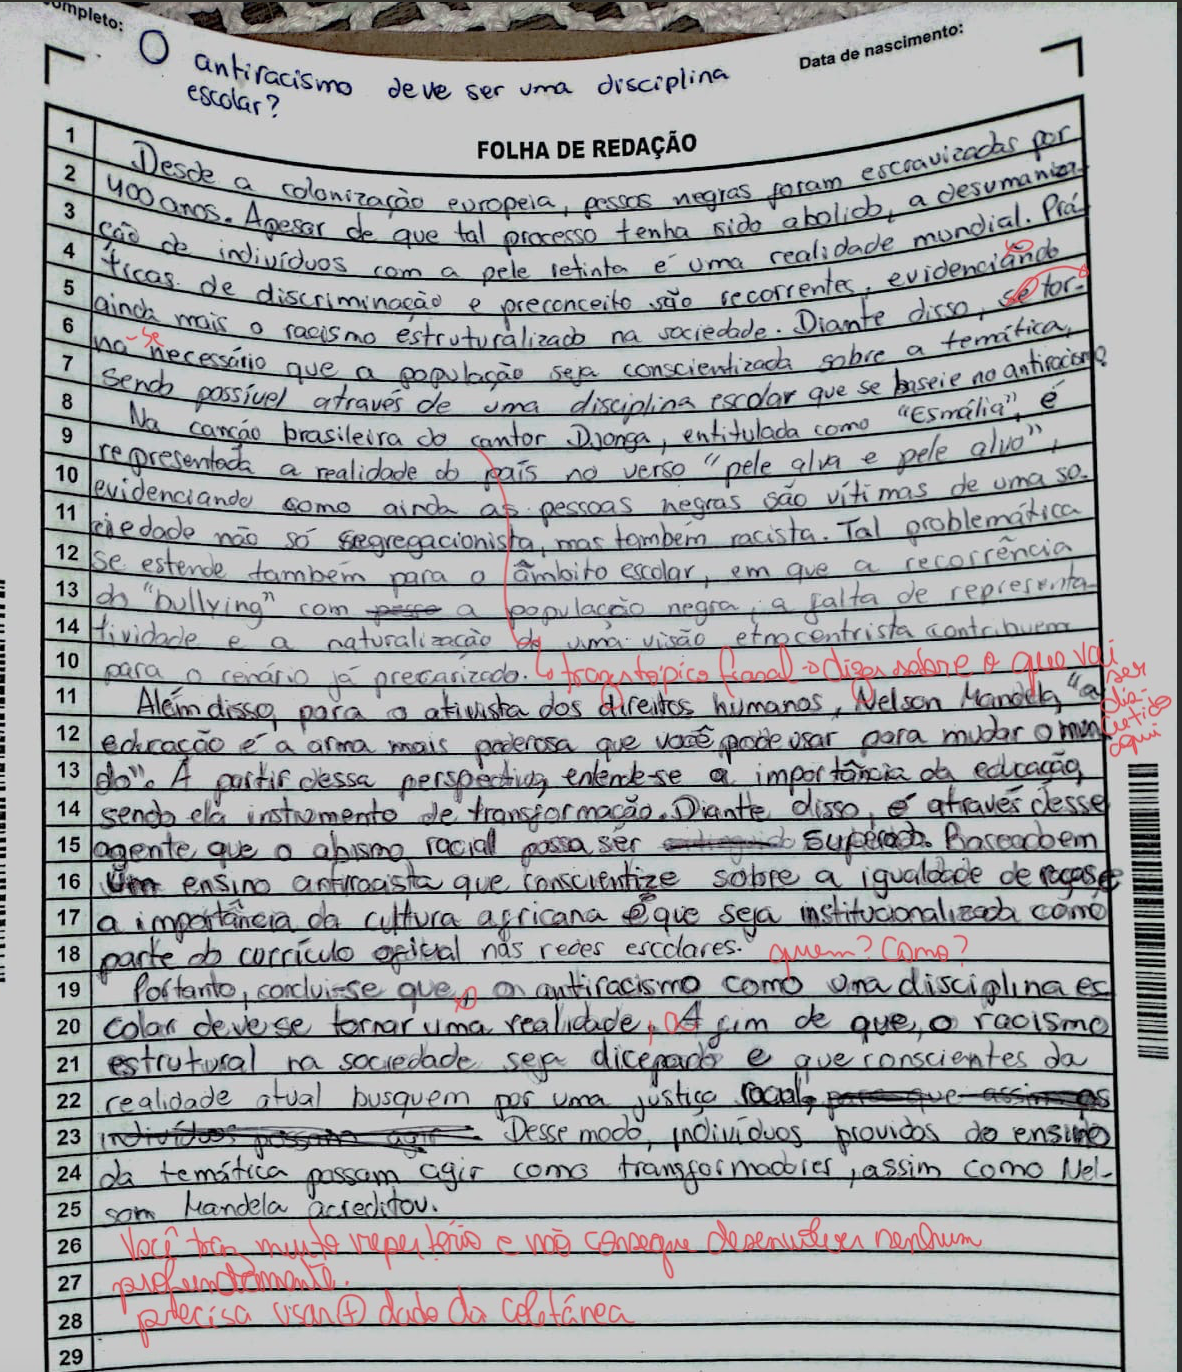 ompleto:
Data de nascimento:
O antiracismo deve ser uma disciplina
escolar?
FOLHA DE REDAÇÃO
1 Desde a colonização europeia, pessoas negras foram escravizadas por
2 400 anos. Apesar de que tal processo tenha sido abolido, a desumaniza-
3 ção de indivíduos com a pele retinta é uma realidade mundial. Prá-
4 ticas de discriminação e preconceito são recorrentes, evidenciando
5 ainda mais o racismo estruturalizado na sociedade. Diante disso, se tor-
6 na -se necessário que a população seja conscientizada sobre a temática,
7 sendo possível através de uma disciplina escolar que se baseie no antiracismo.
8 Na canção brasileira do cantor Djonga, entitulada como "Esmália", é
9 representada a realidade do país no verso "pele alva e pele alvo",
10 evidenciando como ainda as pessoas negras são vítimas de uma so-
11 ciedade não só segregacionista, mas também racista. Tal problemática
12 se estende também para o âmbito escolar, em que a recorrência
13 do "bullying" com a população negra, a falta de representa-
14 tividade e a naturalização de uma visão etnocentrista contribuem
10 para o cenário já precarizado. ↳ frase tópico frasal → dizer sobre o que vai
ser
dis-
cutido
aqui
11 Além disso, para o ativista dos direitos humanos, Nelson Mandela, "a
12 educação é a arma mais poderosa que você pode usar para mudar o mun
13 do". A partir dessa perspectiva, entende-se a importância da educação,
14 sendo ela instrumento de transformação. Diante disso, é através desse
15 agente, que o abismo racial possa ser superado. Baseado em
16 um ensino antiracista que conscientize sobre a igualdade de raças e
17 a importância da cultura africana e que seja institucionalizada como
18 parte do currículo oficial nas redes escolares. quem? Como?
19 Portanto, conclui-se que, o antiracismo como uma disciplina es
20 colar deve se tornar uma realidade, a A fim de que, o racismo
21 estrutural na sociedade seja dicepado e que conscientes da
22 realidade atual busquem por uma justiça racial, para que assim os
23 indivíduos possam agir. Desse modo, indivíduos providos do ensino
24 da temática possam agir como transformadores, assim como Nel-
25 som Mandela acreditou.
26 Você traz muito repertório e não consegue desenvolver nenhum
27 profundamente.
28 precisa usar (+) dado da coletânea
29